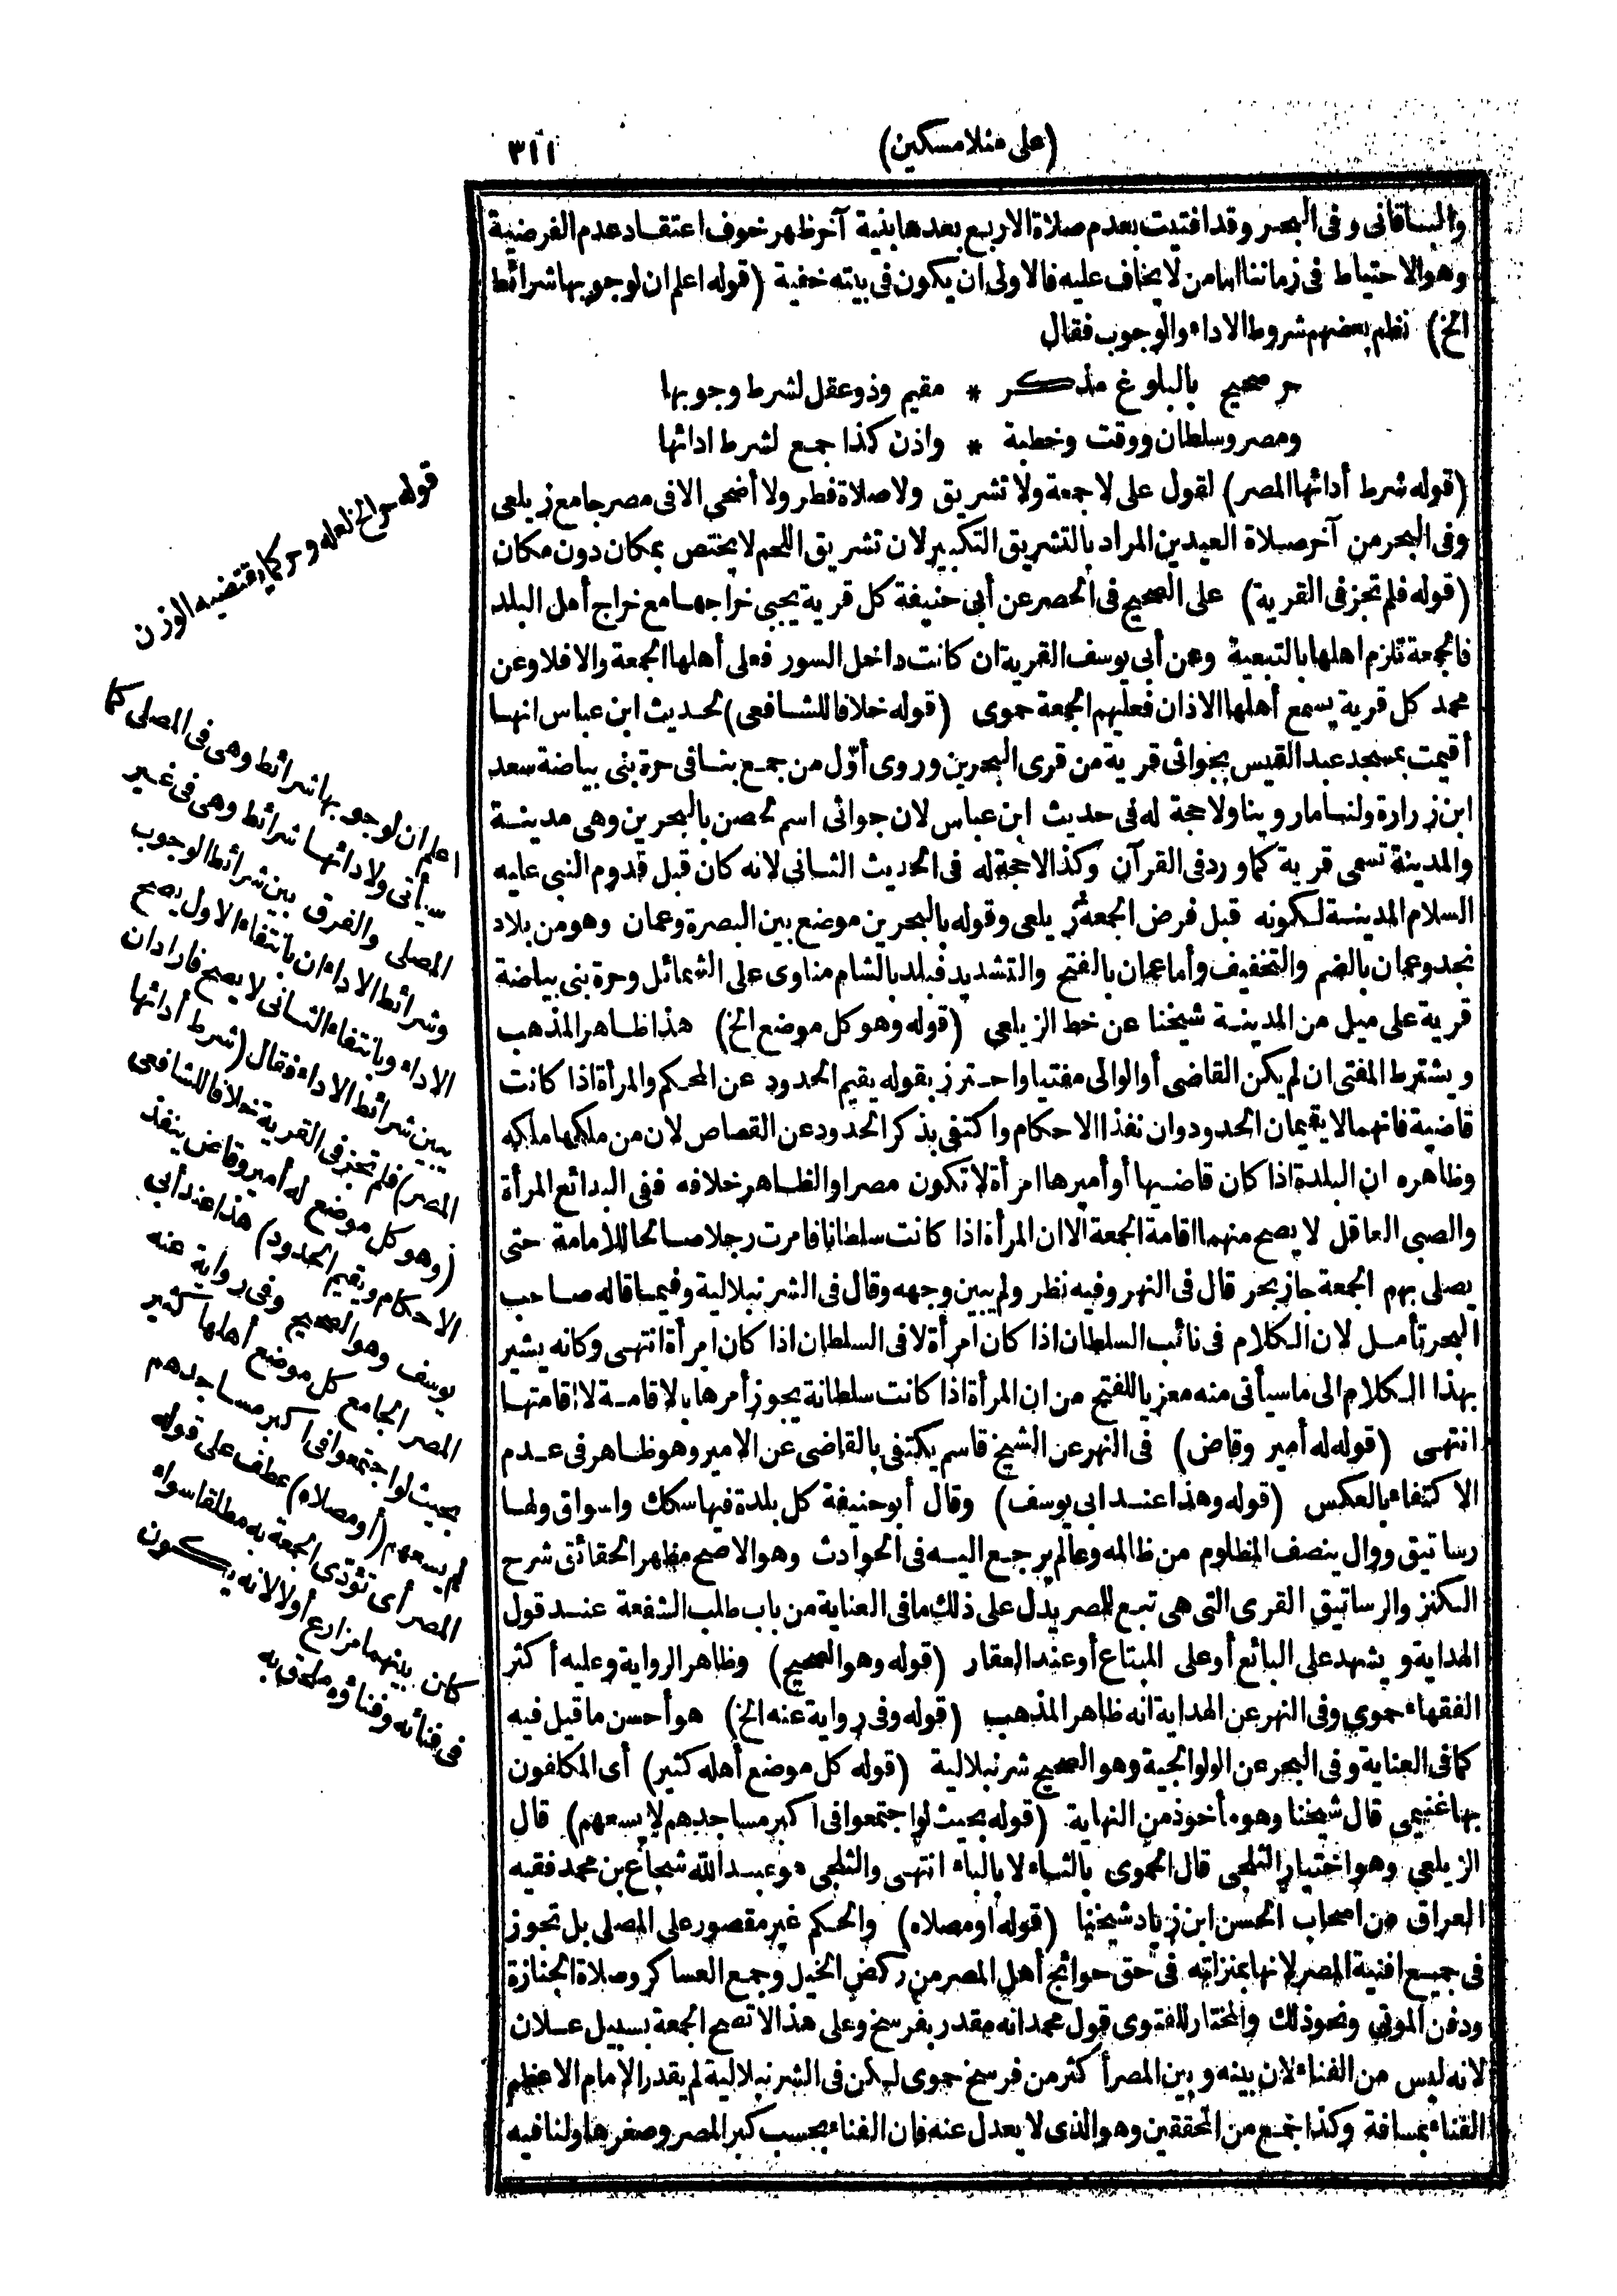 (على منلا مسكين)
٣١١
والباقانى وفى البحر وقد افتيت بعدم صلاة الاربع بعدها بنية آخر ظهر خوف اعتقاد عدم الفرضية
وهو الاحتياط فى زماننا اما من لا يخاف عليه فالاولى ان يكون فى بيته خفية (قوله اعلم ان لوجوبها شرائط
الخ) نظم بعضهم شروط الاداء والوجوب فقال
حر صحيح بالبلوغ مذكر * مقيم وذو عقل لشرط وجوبها
ومصر وسلطان ووقت وخطبة * واذن كذا جمع لشرط ادائها
(قوله شرط أدائها المصر) لقول على لا جمعة ولا تشريق ولا صلاة فطر ولا أضحى الا فى مصر جامع زيلعى
وفى البحر من آخر صلاة العيدين المراد بالتشريق التكبير لان تشريق اللحم لا يختص بمكان دون مكان
(قوله فلم تجز فى القرية) على الصحيح فى الحصر عن أبى حنيفة كل قرية يجبى خراجها مع خراج أهل البلد
فالجمعة تلزم اهلها بالتبعية وعن أبى يوسف القرية ان كانت داخل السور فعلى أهلها الجمعة والا فلا وعن
محمد كل قرية يسمع أهلها الاذان فعليهم الجمعة حموى (قوله خلافا للشافعى) لحديث ابن عباس انها
أقيمت بمسجد عبد القيس بجواثى قرية من قرى البحرين وروى أول من جمع بنا فى حرة بنى بياضة سعد
ابن زرارة ولنا ما روينا ولا حجة له فى حديث ابن عباس لان جواثى اسم لحصن بالبحرين وهى مدينة
والمدينة تسمى قرية كما ورد فى القرآن وكذا لا حجة له فى الحديث الثانى لانه كان قبل قدوم النبى عليه
السلام المدينة لكونه قبل فرض الجمعة زيلعى وقوله بالبحرين موضع بين البصرة وعمان وهو من بلاد
نجد وعمان بالضم والتخفيف وأما عمان بالفتح والتشديد فبلد بالشام مناوى على الشمائل وحرة بنى بياضة
قرية على ميل من المدينة شيخنا عن خط الزيلعى (قوله وهو كل موضع الخ) هذا ظاهر المذهب
ويشترط المفتى ان لم يكن القاضى أو الوالى مفتيا واحترز بقوله يقيم الحدود عن المحكم والمرأة اذا كانت
قاضية فانهما لا يقيمان الحدود وان نفذا الاحكام واكتفى بذكر الحدود عن القصاص لان من ملكها ملكه
وظاهره ان البلدة اذا كان قاضيها أو أميرها امرأة لا تكون مصرا والظاهر خلافه ففى البدائع المرأة
والصبى العاقل لا يصح منهما اقامة الجمعة الا ان المرأة اذا كانت سلطانا فامرت رجلا صالحا للامامة حتى
يصلى بهم الجمعة جاز بحر قال فى النهر وفيه نظر ولم يبين وجهه وقال فى الشرنبلالية وفيما قاله صاحب
البحر تأمل لان الكلام فى نائب السلطان اذا كان امرأة لا فى السلطان اذا كان امرأة انتهى وكانه يشير
بهذا الكلام الى ما سيأتى منه معزيا للفتح من ان المرأة اذا كانت سلطانة يجوز أمرها بالاقامة لا اقامتها
انتهى (قوله له أمير وقاض) فى النهر عن الشيخ قاسم يكتفى بالقاضى عن الامير وهو ظاهر فى عدم
الاكتفاء بالعكس (قوله وهذا عند ابى يوسف) وقال أبو حنيفة كل بلدة فيها سكك واسواق ولها
رساتيق ووال ينصف المظلوم من ظالمه وعالم يرجع اليه فى الحوادث وهو الاصح مظهر الحقائق شرح
الكنز والرساتيق القرى التى هى تبع للمصر يدل على ذلك ما فى العناية من باب طلب الشفعة عند قول
الهداية ويشهد على البائع أو على المبتاع أو عند العقار (قوله وهو الصحيح) وظاهر الرواية وعليه أكثر
الفقهاء حموى وفى النهر عن الهداية انه ظاهر المذهب (قوله وفى رواية عنه الخ) هو أحسن ما قيل فيه
كما فى العناية وفى البحر عن الولوالجية وهو الصحيح شرنبلالية (قوله كل موضع أهله كثير) أى المكلفون
بها غنيمى قال شيخنا وهو مأخوذ من النهاية (قوله بحيث لو اجتمعوا فى اكبر مساجدهم لا يسعهم) قال
الزيلعى وهو اختيار الثلجى قال الحموى بالثاء لا بالباء انتهى والثلجى هو عبد الله شجاع بن محمد فقيه
العراق من اصحاب الحسن ابن زياد شيخنا (قوله او مصلاه) والحكم غير مقصور على المصلى بل تجوز
فى جميع افنية المصر لانها بمنزلته فى حق حوائج أهل المصر من ركض الخيل وجمع العساكر وصلاة الجنازة
ودفن الموتى ونحو ذلك والمختار للفتوى قول محمد انه مقدر بفرسخ وعلى هذا لا تصح الجمعة بسبيل علان
لانه ليس من الفناء لان بينه وبين المصر أكثر من فرسخ حموى لكن فى الشرنبلالية لم يقدر الامام الاعظم
الفناء بمسافة وكذا جمع من المحققين وهو الذى لا يعدل عنه فان الفناء بحسب كبر المصر وصغرها ولنا فيه
قوله حر الخ لعله وحر كما يقتضيه الوزن
اعلم ان لوجوبها شرائط وهى فى المصلى كما
سيأتى ولادائها شرائط وهى فى غير
المصلى والفرق بين شرائط الوجوب
وشرائط الاداء ان بانتفاء الاول يصح
الاداء وبانتفاء الثانى لا يصح فاراد ان
يبين شرائط الاداء فقال (شرط أدائها
المصر) فلم تجز فى القرية خلافا للشافعى
(وهو كل موضع له أمير وقاض ينفذ
الاحكام ويقيم الحدود) هذا عند أبى
يوسف وهو الصحيح وفى رواية عنه
المصر الجامع كل موضع أهلها كثير
بحيث لو اجتمعوا فى اكبر مساجدهم
لم يسعهم (أو مصلاه) عطف على قوله
المصر أى تؤدى الجمعة به مطلقا سواء
كان بينهما مزارع أو لا لانه يكون
فى فنائه وفناؤه ملحق به